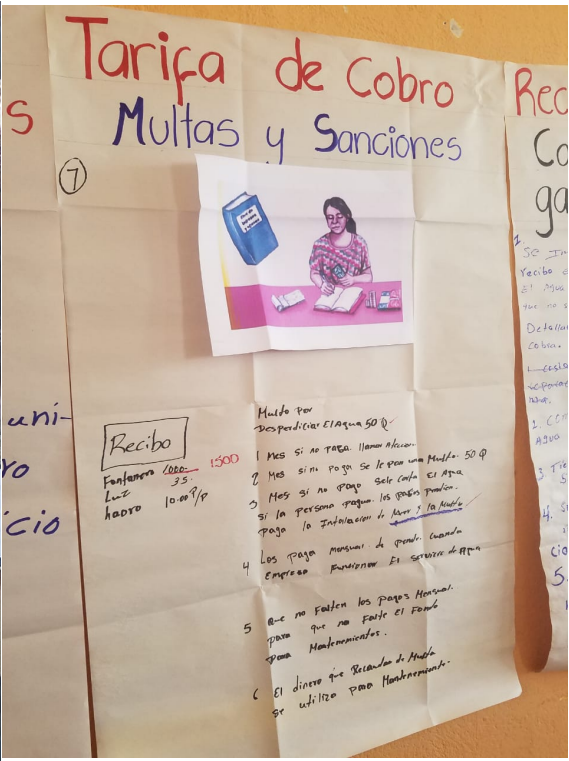 Tarifa de Cobro
Multas y Sanciones
7
Recibo
Fontanero 1000.- 1500
Luz 35.
haoro 10.00 P/P
Multa por
Desperdiciar El Agua 50 Q
1 Mes si no paga llamar Atencion
2 Mes si no paga se le pon una Multa. 50 Q
3 Mes si no pago Sele Corta El Agua
si la persona pagua. los pagos
paga la Instalacion de y la Multa
4 Los paga Mensual. de pende. Cuando
Empiesa Funcionar El servicio de Agua
5 Que no Falten los pagos Mensual.
para que no Falte El Fondo
para Mantenemientos.
6 El dinero que Recaudan de Multa
se utiliza para Mantenemiento.
s
uni-
ro
cio
Rec
Co
ga
1.
SE
recibo
El Agua
que no s
Detalla
cobra.
2.
Agua
3
4.
cio
5.